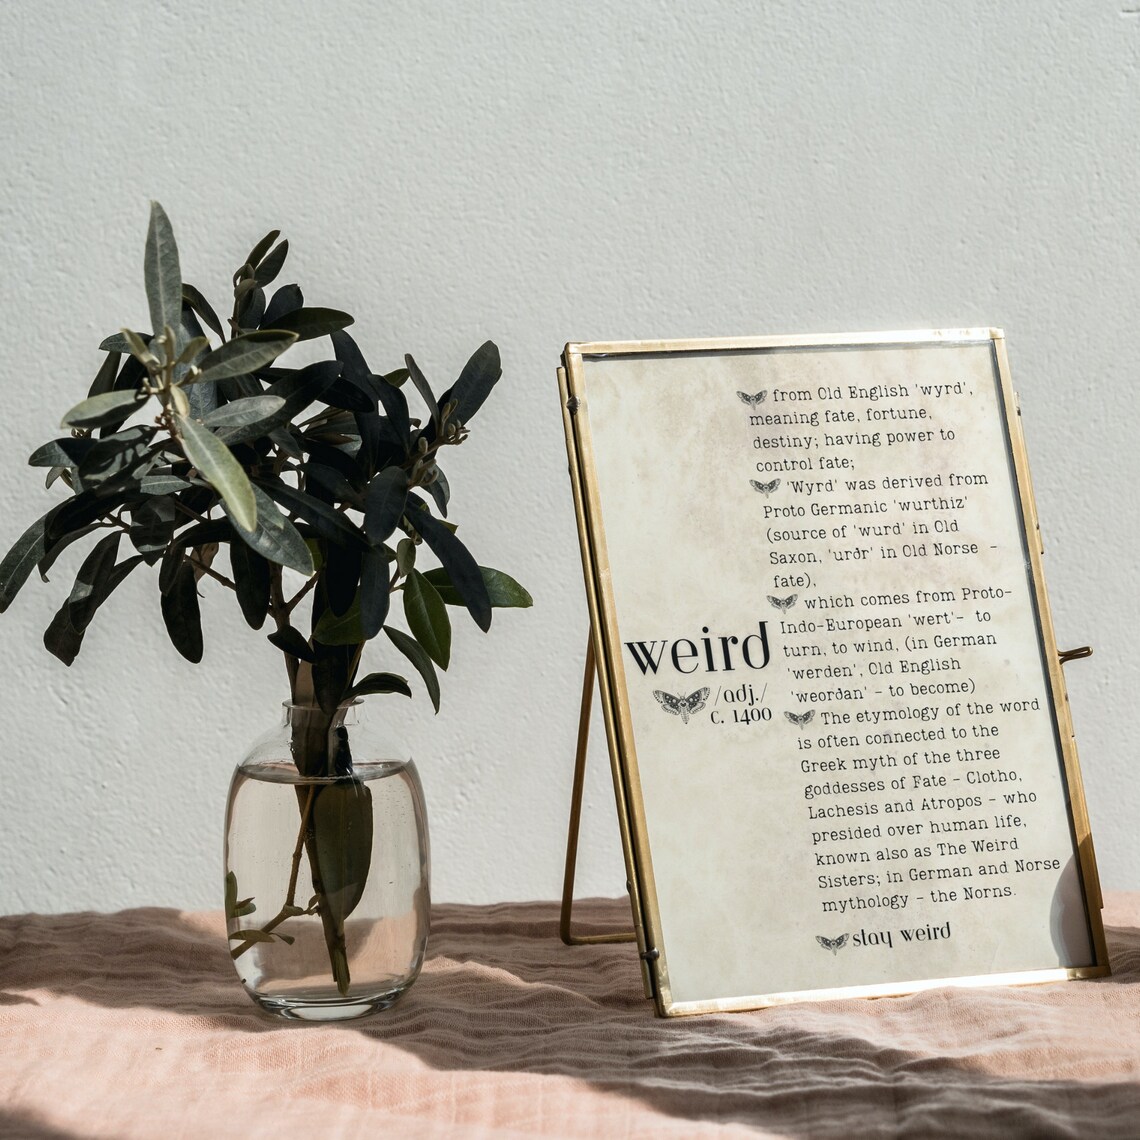 weird
/adj./
c. 1400
from Old English 'wyrd',
meaning fate, fortune,
destiny; having power to
control fate;
'Wyrd' was derived from
Proto Germanic 'wurthiz'
(source of 'wurd' in Old
Saxon, 'urðr' in Old Norse -
fate),
which comes from Proto-
Indo-European 'wert'- to
turn, to wind, (in German
'werden', Old English
'weorðan' - to become)
The etymology of the word
is often connected to the
Greek myth of the three
goddesses of Fate - Clotho,
Lachesis and Atropos - who
presided over human life,
known also as The Weird
Sisters; in German and Norse
mythology - the Norns.
stay weird